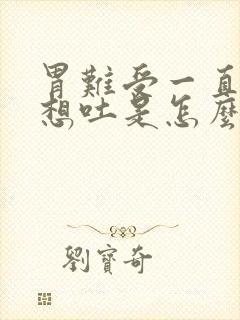 胃難受一直
想吐是怎麼
劉寶奇